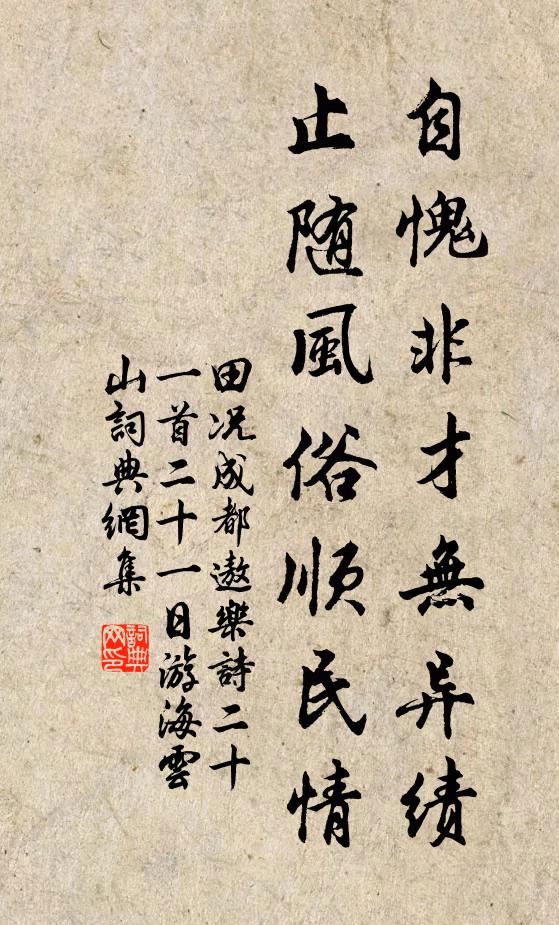 自愧非才無异绩
止随風俗順民情
田况成都遨樂詩二十
一首二十一日游海雲
山詞典網集
詞典网印